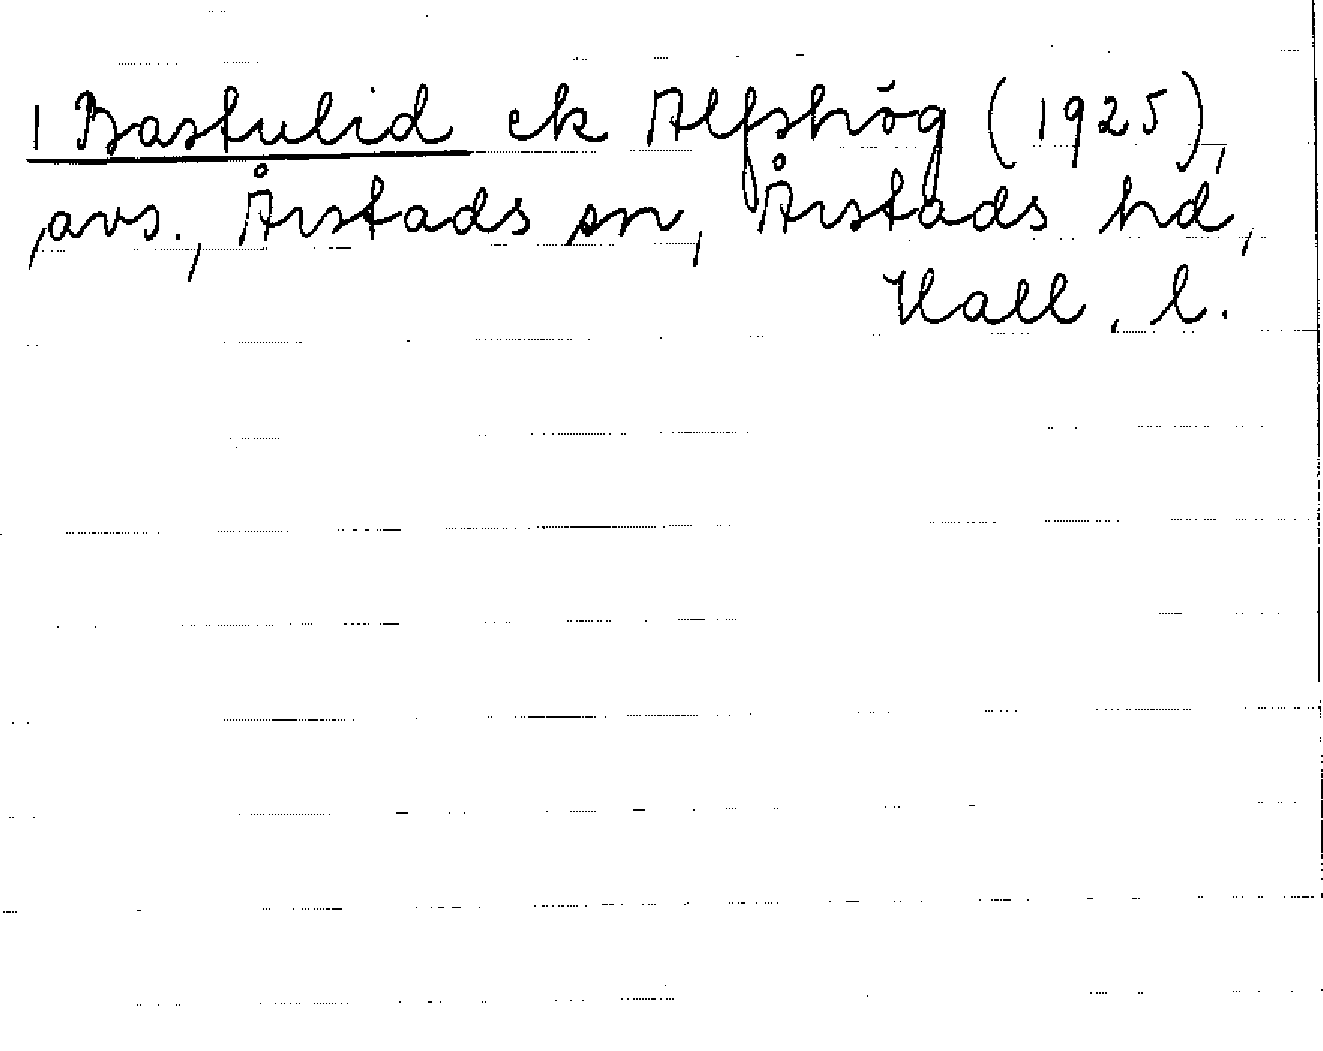 1 Bastulid ek Alfshög (1925),
avs., Årstads sn, Årstads hd,
Hall. l.